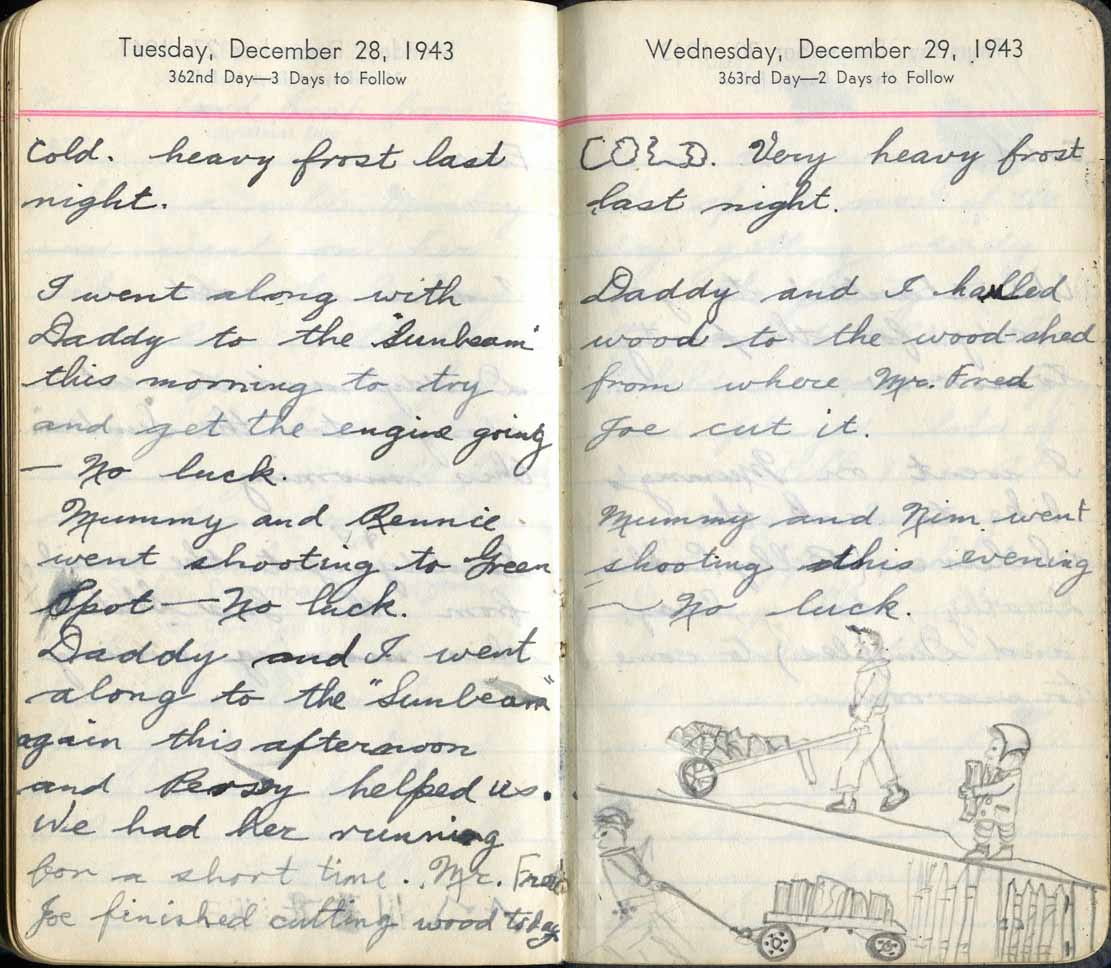 Tuesday, December 28, 1943
362nd Day—3 Days to Follow
Cold. heavy frost last
night.
I went along with
Daddy to the "Sunbeam"
this morning to try
and get the engine going
— No luck.
Mummy and Rennie
went shooting to Green
Spot — No luck.
Daddy and I went
along to the "Sunbeam"
again this afternoon
and Persey helped us.
We had her running
for a short time. Mr. Fred
Joe finished cutting wood today
Wednesday, December 29, 1943
363rd Day—2 Days to Follow
COLD. Very heavy frost
last night.
Daddy and I hauled
wood to the wood-shed
from where Mr. Fred
Joe cut it.
Mummy and Nim went
shooting this evening
— No luck.